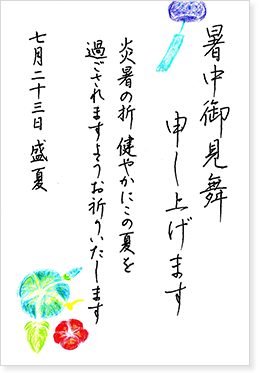 暑中御見舞
申し上げます
炎暑の折 健やかにこの夏を
過ごされますようお祈りいたします
七月二十三日 盛夏